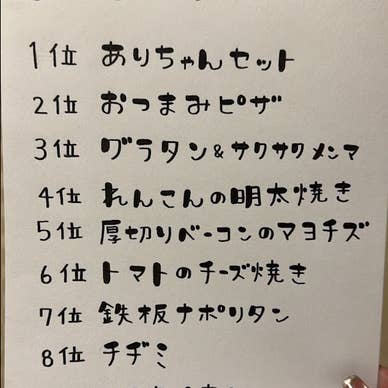 1位 ありちゃんセット
2位 おつまみピザ
3位 グラタン&サクサクメンマ
4位 れんこんの明太焼き
5位 厚切りベーコンのマヨチズ
6位 トマトのチーズ焼き
7位 鉄板ナポリタン
8位 チヂミ